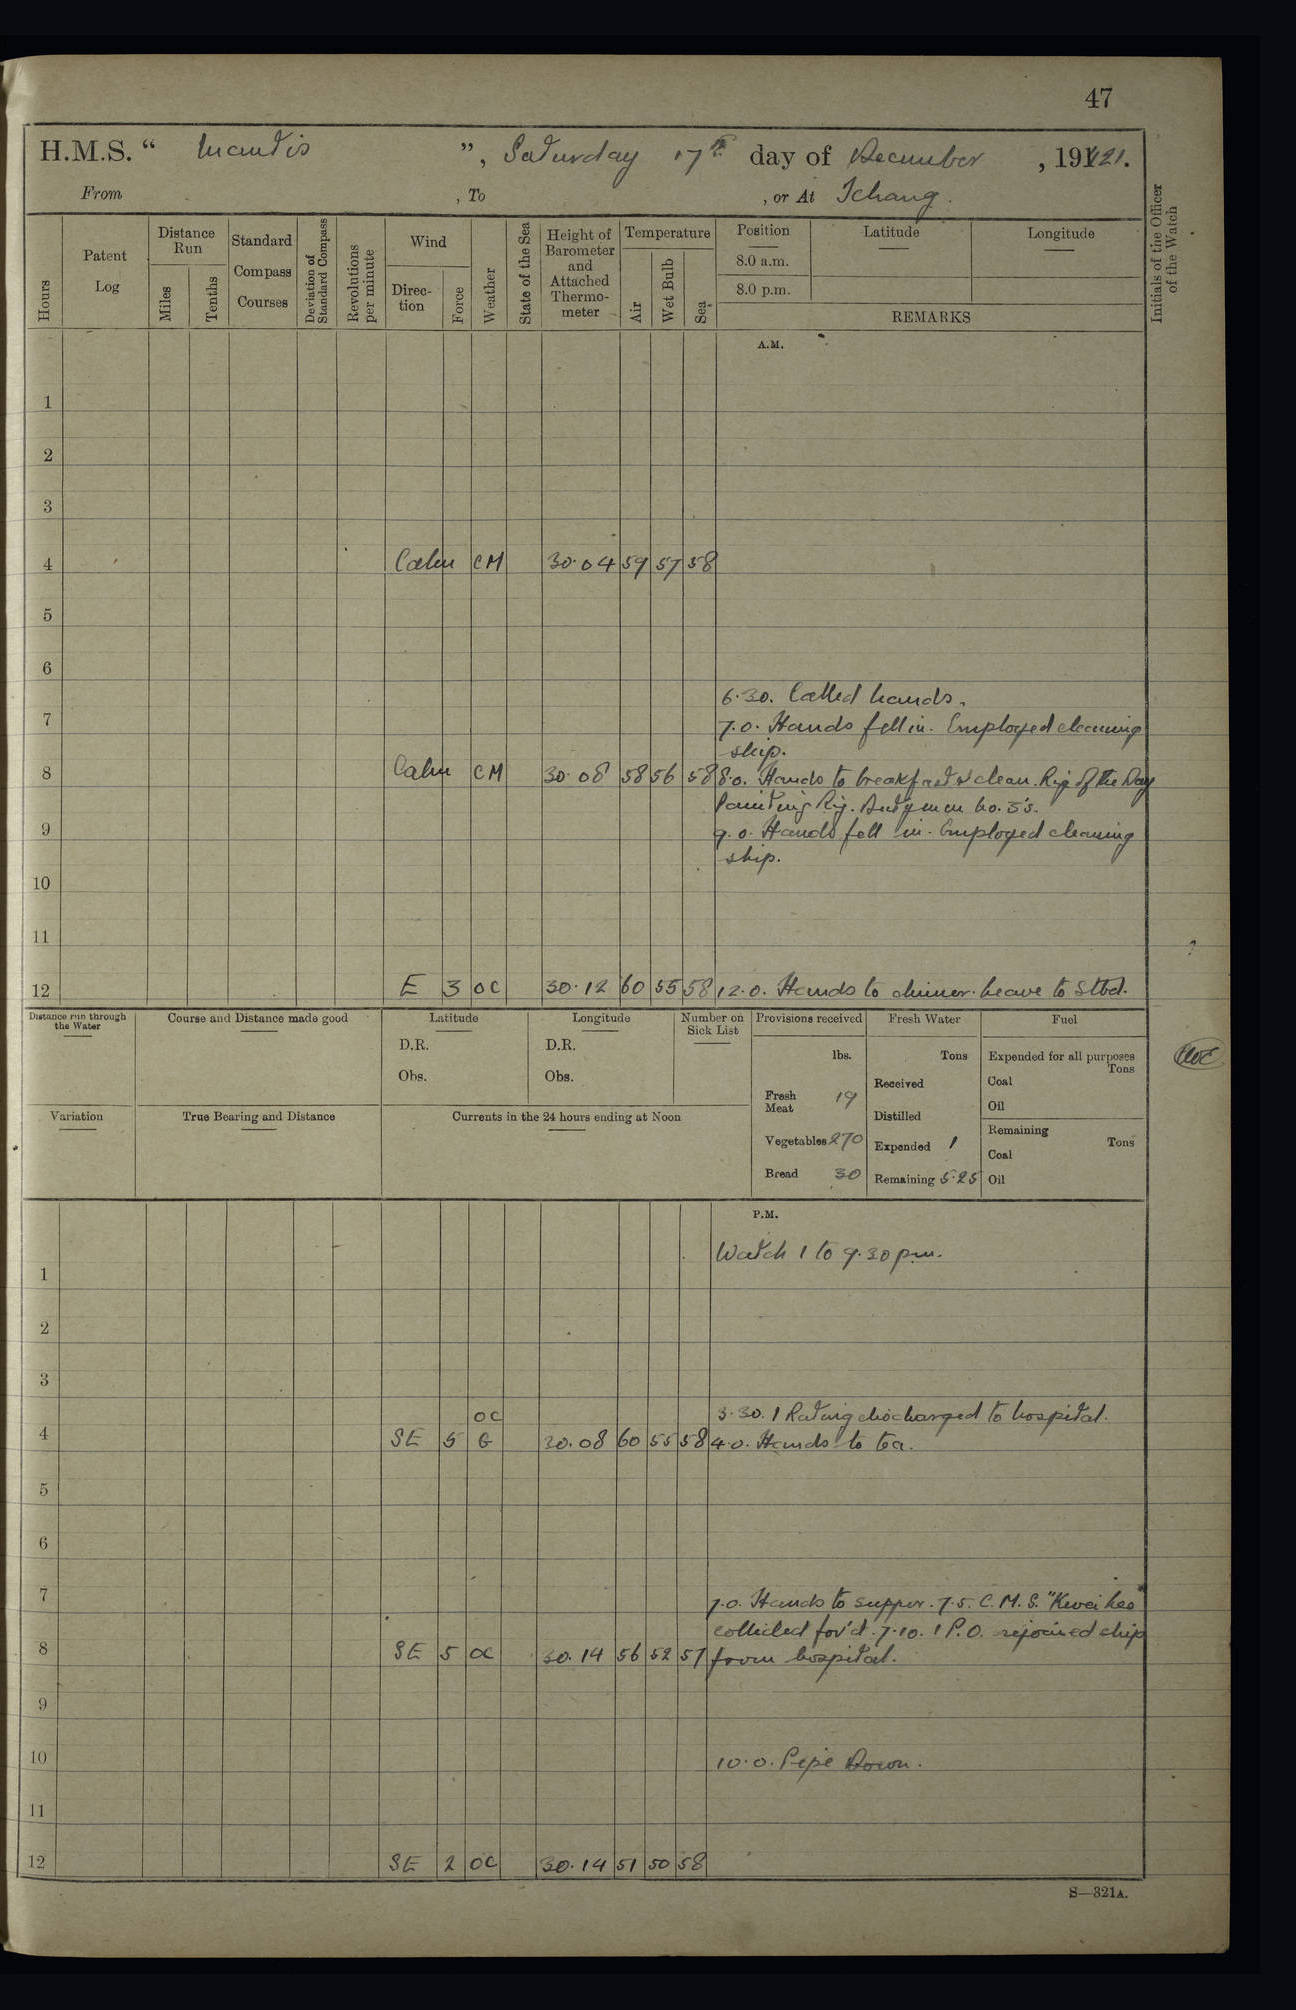 47
H.M.S. “ Mantis ”, Saturday 17th day of December, 1921.
From , To , or At Ichang.
Hours
Patent Log
Distance Run
Miles
Tenths
Standard Compass Courses
Deviation of Standard Compass
Revolutions per minute
Wind
Direction
Force
Weather
State of the Sea
Height of Barometer and Attached Thermometer
Temperature
Air
Wet Bulb
Sea
Position
8.0 a.m.
8.0 p.m.
Latitude
Longitude
REMARKS
Initials of the Officer of the Watch
A.M.
1
2
3
4 Calm CM 30.04 59 57 58
5
6
6.30. Called hands.
7 7.0. Hands fell in. Employed cleaning
ship.
8 Calm CM 30.08 58 56 58 8.0. Hands to breakfast & clean. Rig of the Day
Painting Rig. No. 3's.
9 9.0. Hands fell in. Employed cleaning
ship.
10
11
12 E 3 OC 30.12 60 55 58 12.0. Hands to dinner. Leave to Stbd.
Distance run through the Water
Course and Distance made good
Latitude
D.R.
Obs.
Longitude
D.R.
Obs.
Number on Sick List
Provisions received
lbs.
Fresh Meat 19
Vegetables 270
Bread 30
Fresh Water
Tons
Received
Distilled
Expended 1
Remaining 5.25
Fuel
Expended for all purposes
Tons
Coal
Oil
Remaining
Tons
Coal
Oil
Variation
True Bearing and Distance
Currents in the 24 hours ending at Noon
P.M.
Watch 1 to 9.30 p.m.
1
2
3
OC 3.30. 1 Rating discharged to hospital.
4 SE 5 G 30.08 60 55 58 4.0. Hands to tea.
5
6
7 7.0. Hands to supper. 7.5. C.M.S. "Kwei hee"
collided for'd. 7.10. 1 P.O. rejoined ship
8 SE 5 OC 30.14 56 52 57 from hospital.
9
10 10.0. Pipe Down.
11
12 SE 2 OC 30.14 51 50 58
S—321A.